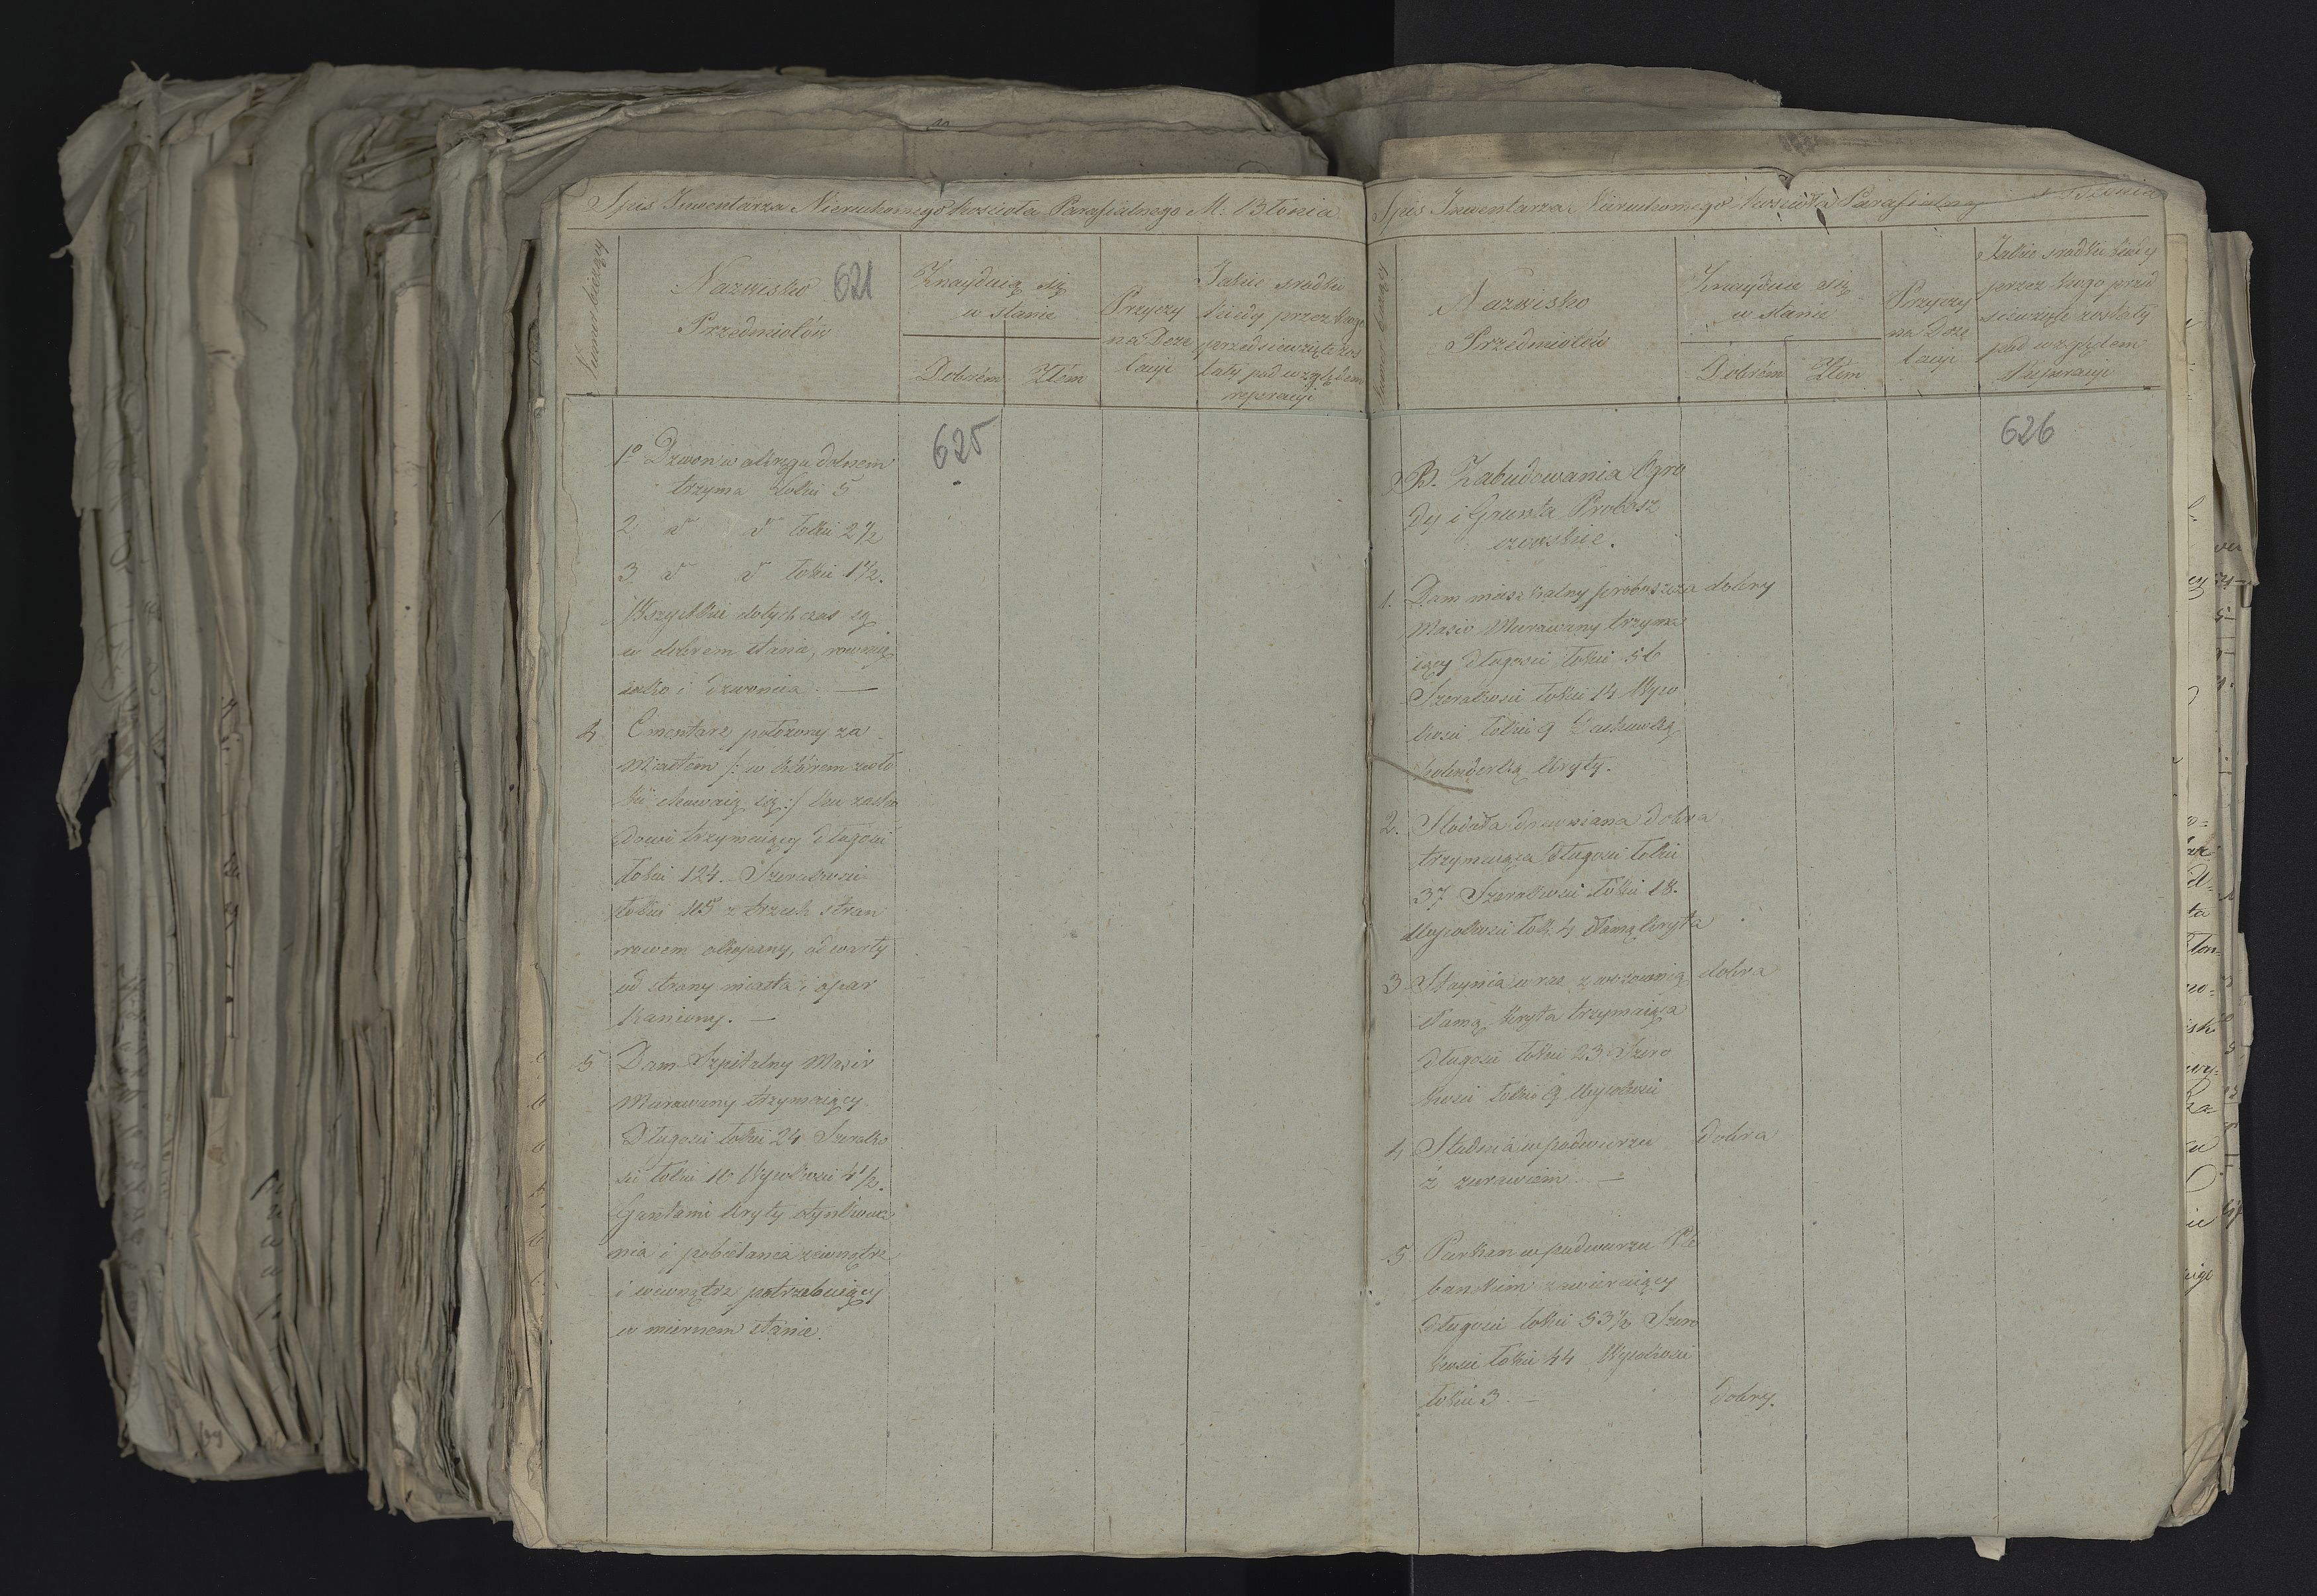 Spis Inwentarza Nieruchomego kościoła Parafialnego M: Błonia
Numer bieżący
Nazwisko
Przedmiotów
621
Znayduią się
w stanie
Dobrém
Złém
Przyczy
na Dezo
lacyi
Jakie srodki
kiedy przez kogo
przedsiewzięte zos
tały pod względem
reperacyi
625
1º Dzwon w okręgu dolnem
trzyma łokci 5
2 d d łokci 2 1/2
3 d d łokci 1 1/2.
Wszystkie dotychczas są
w dobrem stanie, rownie
iako i dzwonica. —
4 Cmentarz położony za
Miastem /: w którem zwło
ki chowaią się :/ ku zacho
dowi trzymaiący długosci
łokci 124. Szerokosci
łokci 115 z trzech stron
rowem okopany, od warty
od strony miasta i opar
kaniony. —
5 Dom Szpitalny Masiv
Murowany trzymaiący
Długosci łokci 24 Szeroko
sci łokci 10 Wysokosci 4 1/2.
Gontami kryty otynkowa
nia i pobielania zewnątrz
i wewnątrz potrzebuiący
w miernem stanie.
Spis Inwentarza Nieruchomego kościoła Parafialnego Błonia
Numer bieżący
Nazwisko
Przedmiotów
Znayduie się
w stanie
Dobrém
Złém
Przyczy
na Dezo
lacyi
Jakie srodki kiedy
przez kogo przed
siewzięte zostały
pod względem
Reperacyi
626
B. Zabudowania Ogro
dy i Grunta Probosz
czowskie.
1. Dom mieszkalny proboszcza dobry
Masiv Murowany trzyma
iący długosci łokci 56
Szerokosci łokci 14 Wyso
kosci łokci 9 Dachowką
holenderką kryty.
2. Stodoła drewniana dobra
trzymaiąca długosci łokci
37 Szerokosci łokci 18.
Wysokosci łok: 4 słomą kryta
3 Staynia wraz z wozownią dobra
słomą kryta trzymaiąca
długosci łokci 23 Szero
kosci łokci 9 Wysokosci
4 Studnia w podworzu dobra
z zurawiem. —
5 Parkan w podworzu Ple
banskim zawieraiący
długosci łokci 53 1/2 Szero
kosci łokci 44 Wysokosci
łokci 3. — dobry.